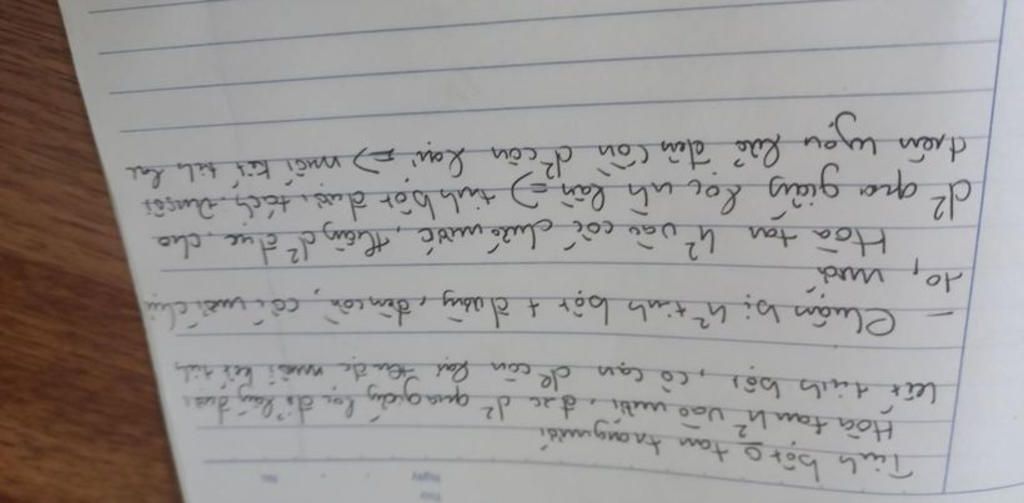 Tinh bột o tan trong nước
Hòa tan h² vào nước, đxc d² qua giấy lọc để lấy được
hết tinh bột, cô cạn d² còn lại thu đc muối kết tinh
- Chuẩn bị: h² tinh bột + đường, đèn cồn, cốc nước
10, nước
Hoà tan h² vào cốc chứa nước, d² đục, cho
d² qua giấy lọc nh lần => tinh bột được tách
trên ngọn lửa đèn cồn d² còn lại => muối kết tinh lại